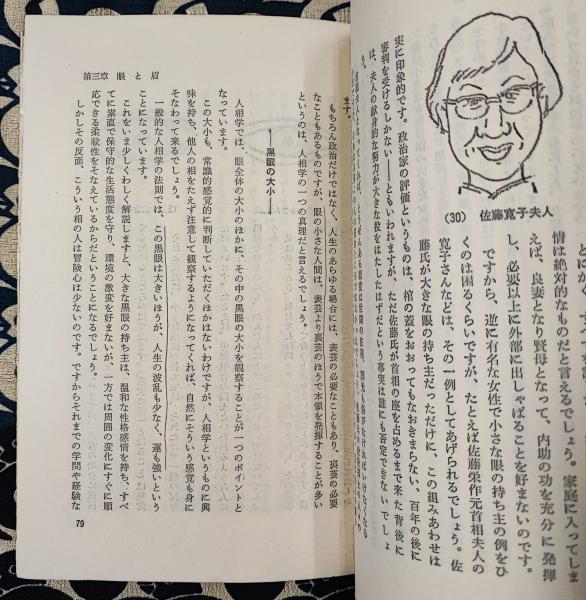 (30)　佐藤寛子夫人
情は絶対的なものだと言えるでしょう。家庭に入ってしま
えば、良妻となり賢母となって、内助の功を充分に発揮
し、必要以上に外部に出しゃばることを好まないのです。
ですから、逆に有名な女性で小さな眼の持ち主の例をひ
くのは困るくらいですが、たとえば佐藤栄作元首相夫人の
寛子さんなどは、その一例としてあげられるでしょう。佐
藤氏が大きな眼の持ち主だっただけに、この組みあわせは
実に印象的です。政治家の評価というものは、棺の蓋をおおってもなおきまらない、百年の後に
審判を受けるしかない――ともいわれますが、ただ佐藤氏が首相の座を占めるまで来た背後に
は、夫人の献身的な努力が大きな役をはたしたはずだという事実は誰にも否定できないでしょ
ます。
もちろん政治だけではなく、人生のあらゆる場合には、表芸の必要なこともあり、裏芸の必要
なこともあるものですが、眼の小さな人間は、表芸より裏芸のほうで本領を発揮することが多い
というのは、人相学の一つの真理だと言えるでしょう。
――黒眼の大小――
人相学では、眼全体の大小のほかに、その中の黒眼の大小を観察することが一つのポイントと
なっています。
この大小も、常識的感覚的に判断していただくほかはないわけですが、人相学というものに興
味を持ち、他人の相をたえず注意して観察するようになってくれば、自然にそういう感覚も身に
そなわって来るでしょう。
一般的な人相学の法則では、この黒眼は大きいほうが、人生の波乱も少なく、運も強いという
ことになっています。
これをいま少しくわしく解説しますと、大きな黒眼の持ち主は、温和な性格感情を持ち、すべ
てに素直で保守的な生活態度を守り、環境の激変を好まないが、一方では周囲の変化にすぐに順
応できる柔軟性をそなえているからだということになるでしょう。
しかしその反面、こういう相の人は冒険心は少ないのです。ですからそれまでの学問や経験な
第三章　眼と眉
79